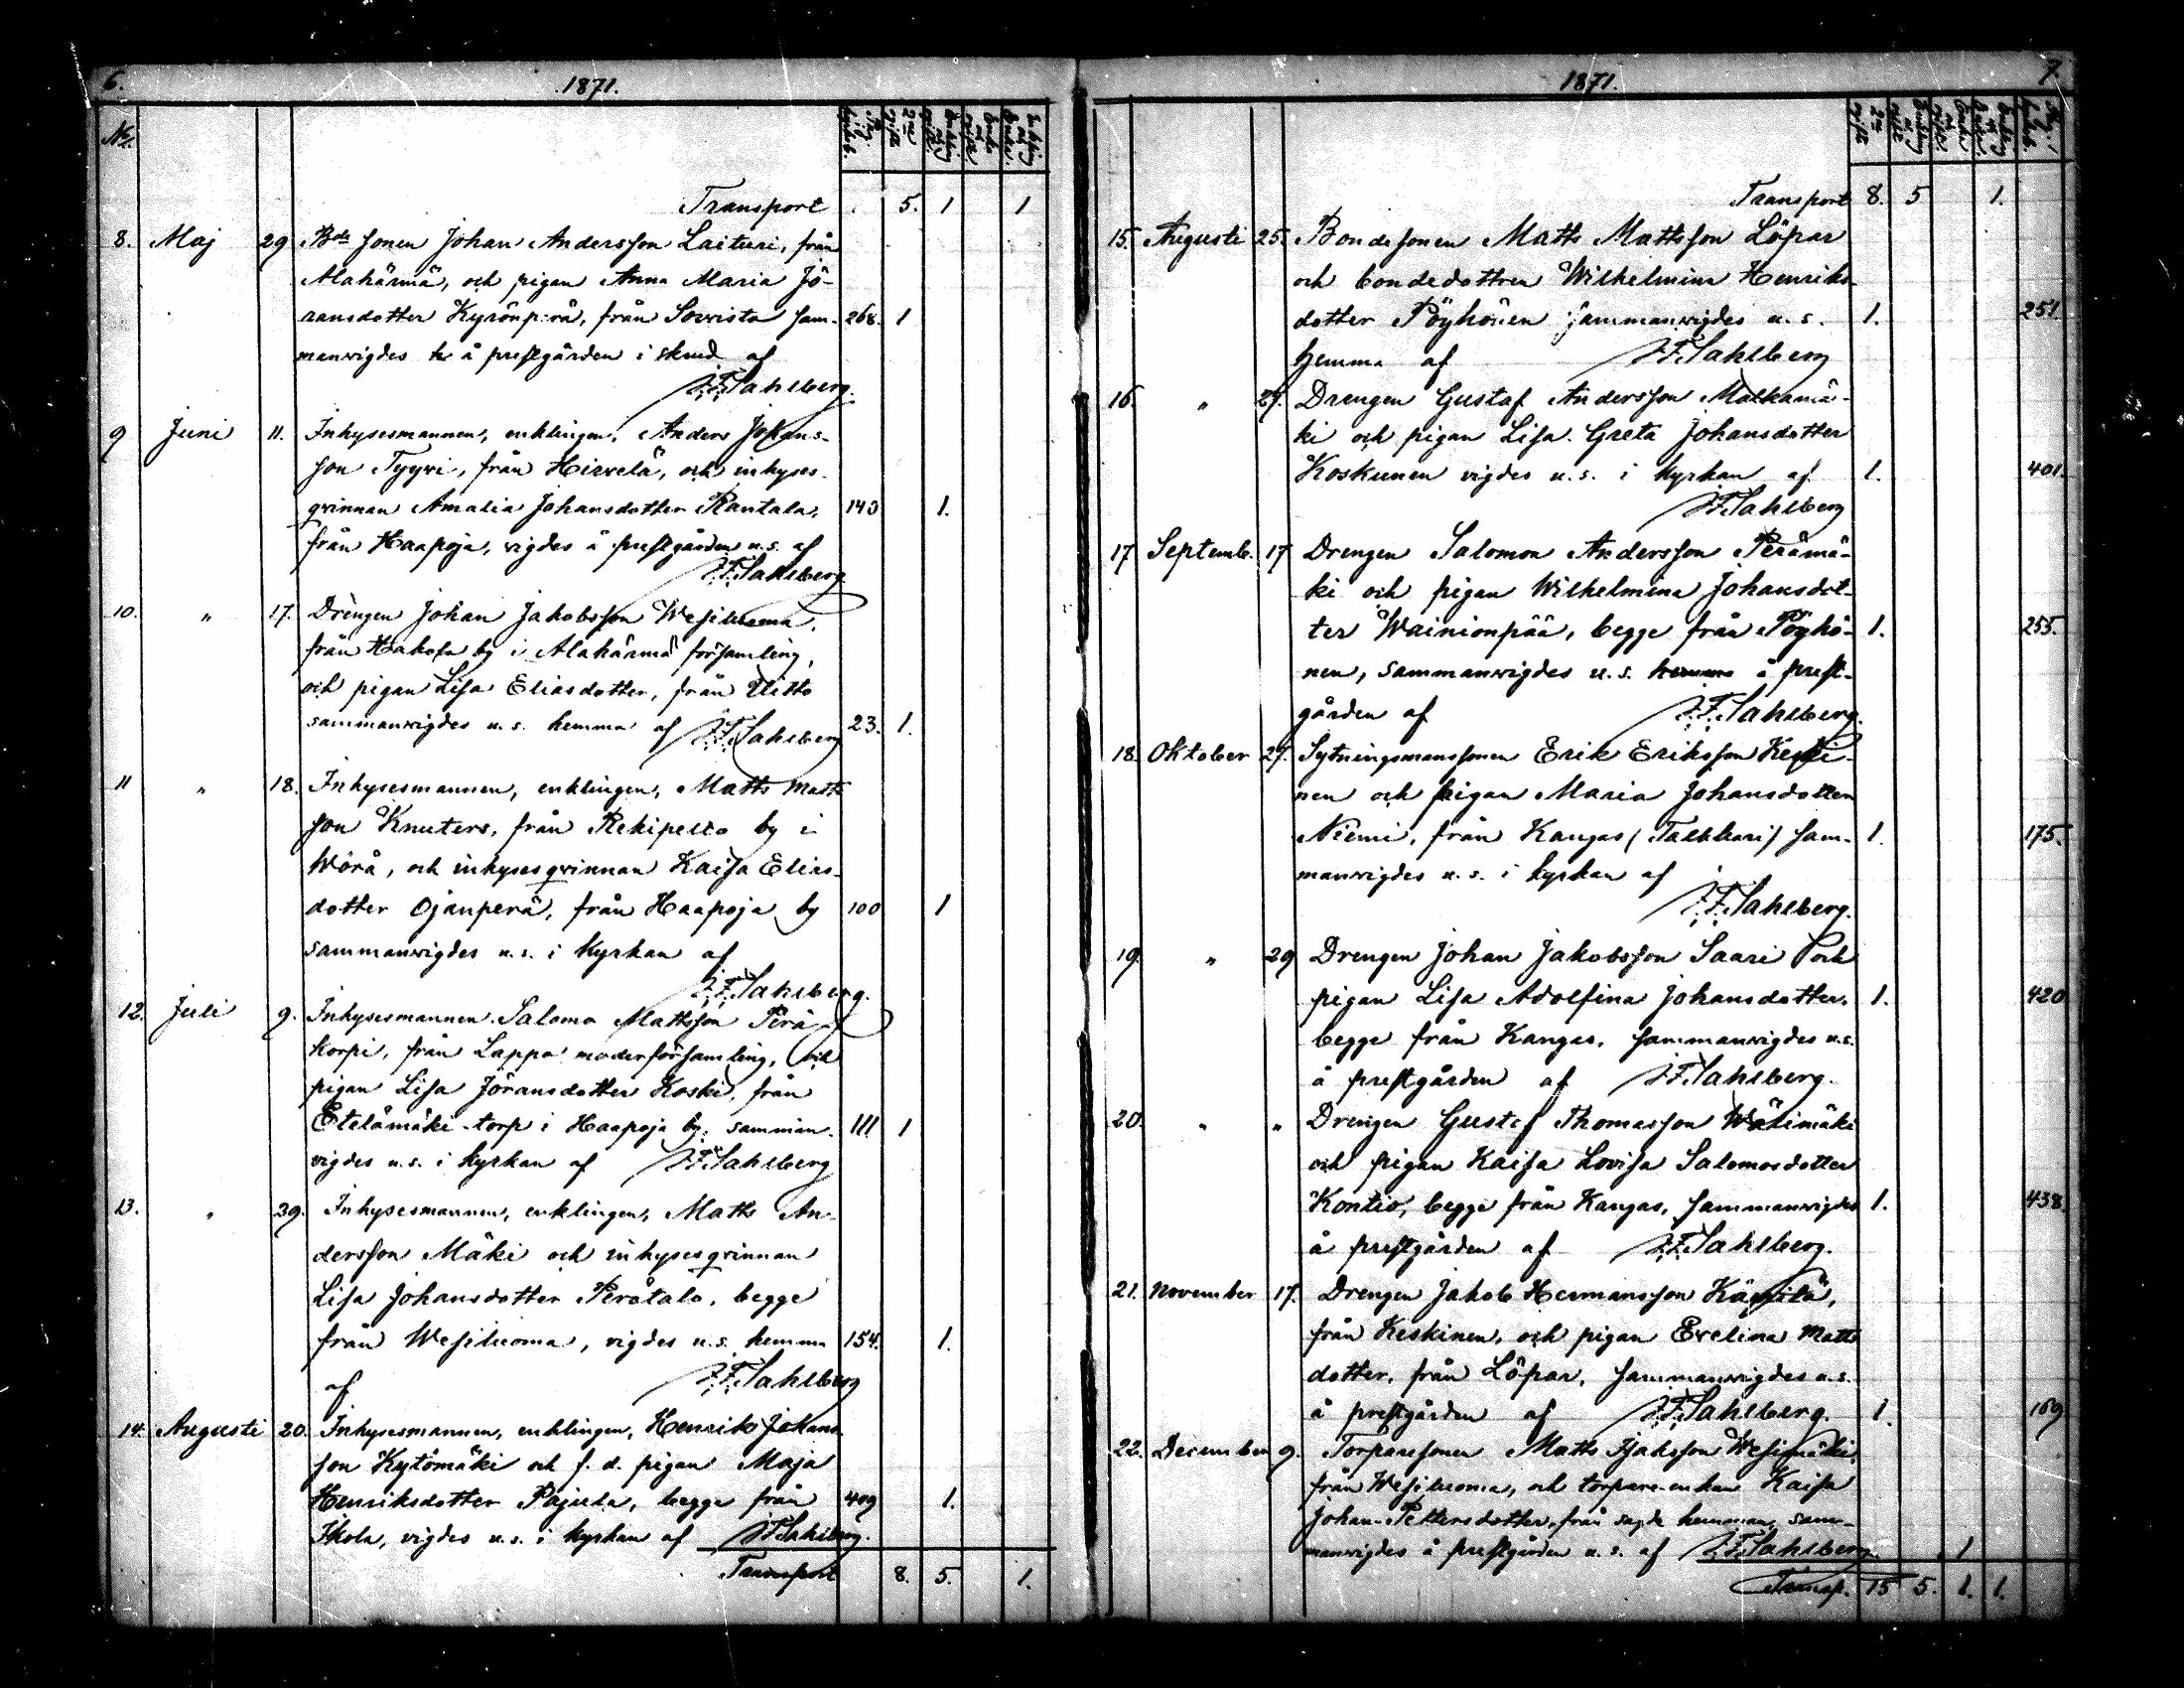 6.
1871.
No.
Transport 5. 1 1
8. Maj 29 Bde sonen Johan Andersson Laituri, från
Alahärmä, och pigan Anna Maria Jö-
ransdotter Kyrönp:rä, från Sorvisto sam- 268. 1
manvigdes hr å prestgården i skrud af
J.F. Sahlberg.
9 Juni 11. Inhysesmannen, enklingen, Anders Johans-
son Tyyri, från Hirvelä, och inhyses-
qvinnan Amalia Johansdotter Rantala, 143 1.
från Haapoja, vigdes å prestgården u.s. af
J.F. Sahlberg
10. " 17. Drengen Johan Jakobsson Wesiluoma,
från Hakola by i Alahärmä församling,
och pigan Lisa Eliasdotter, från Uitto
sammanvigdes u.s. hemma af J.F. Sahlberg 23. 1.
11 " 18. Inhysesmannen, enklingen, Matts Matts
son Knuters, från Rekipelto by i
Wörå, och inhysesqvinnan Kaisa Elias-
dotter Ojanperä, från Haapoja by 100 1
sammanvigdes u.s. i kyrkan af
J.F. Sahlberg.
12. Juli 9. Inhysesmannen Salomo Mattsson Perä-
korpi, från Lappo moderförsamling, och
pigan Lisa Jöransdotter Koski, från
Etelämäki-torp i Haapoja by, samman- 111 1
vigdes u.s. i kyrkan af J.F. Sahlberg
13. " 29. Inhysesmannen, enklingen, Matts An-
dersson Mäki och inhysesqvinnan
Lisa Johansdotter Perätalo, begge
från Wesiluoma, vigdes u.s. hemma 154. 1.
af J.F. Sahlberg
14. Augusti 20. Inhysesmannen, enklingen, Henrik Johans
son Kytömäki och f.d. pigan Maja
Henriksdotter Pajula, begge från 409 1.
Ikola, vigdes u.s. i kyrkan af J.F. Sahlberg.
Transport 8. 5. 1.
1871.
7.
Transport 8. 5 1.
15. Augusti 25. Bondesonen Matts Mattsson Löpar
och bondedottren Wilhelmina Henriks-
dotter Pöyhönen sammanvigdes u.s. 1. 251.
hemma af J.F. Sahlberg
16. " 27. Drengen Gustaf Andersson Malkamä-
ki och pigan Lisa Greta Johansdotter
Koskunen vigdes u.s. i kyrkan af 1. 401.
J.F. Sahlberg
17 Septemb. 17 Drengen Salomon Andersson Perämä-
ki och pigan Wilhelmina Johansdot-
ter Wainionpää, begge från Pöyhö- 1. 255.
nen, sammanvigdes u.s. hemma å prest-
gården af J.F. Sahlberg.
18. Oktober 27. Sytningsmanssonen Erik Eriksson Keski-
nen och pigan Maria Johansdotter
Niemi, från Kangas (Talkkari) sam- 1. 175.
manvigdes u.s. i kyrkan af
J.F. Sahlberg.
19. " 29 Drengen Johan Jakobsson Saari och
pigan Lisa Adolfina Johansdotter, 1. 420
begge från Kangas, sammanvigdes u.s.
å prestgården af J.F. Sahlberg.
20. " " Drengen Gustaf Thomasson Wälimäki
och pigan Kaisa Lovisa Salomosdotter
Kontio, begge från Kangas, sammanvigdes 1. 438.
å prestgården af J.F. Sahlberg.
21. November 17. Drengen Jakob Hermansson
från Keskinen, och pigan Evelina Matts
dotter, från Löpar, sammanvigdes u.s.
å prestgården af J.F. Sahlberg. 1. 169
22. December 9. Torparesonen Matts Isaksson Wesimäki,
från Wesiluoma, och torpare-enkan Kaisa
Johan-Pettersdotter, från sagde hemman, sam-
manvigdes å prestgården u.s. af J.F. Sahlberg. 1
Transp. 15 5. 1. 1.